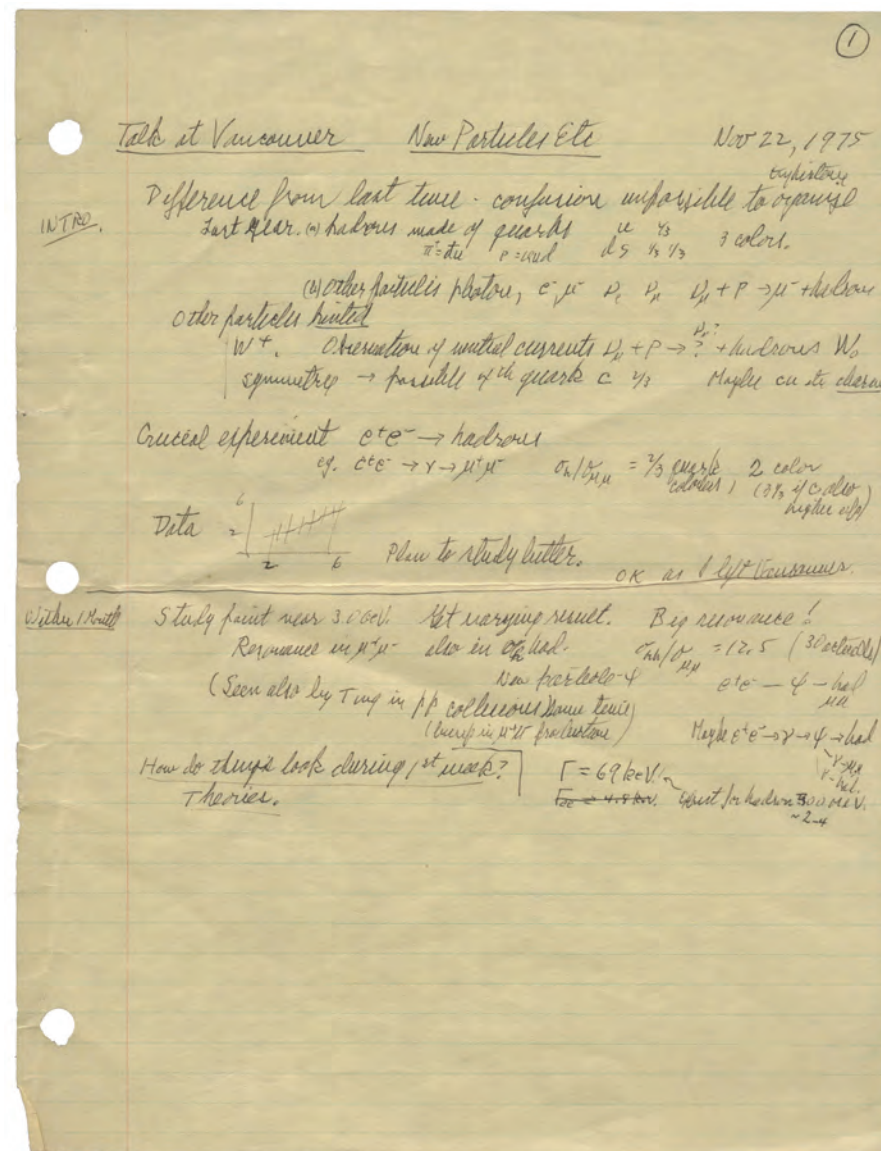 ①
Talk at Vancouver New Particles Etc Nov 22, 1975
by history
Difference from last time - confusion impossible to organize
INTRO.
Last year. (a) hadrons made of quarks u 2/3 d s 1/3 1/3 3 colors.
π⁺= P = uud
(b) Other particles photon, e⁻ μ⁻ ν_e ν_μ ν_μ + P → μ⁻ + hadrons
Other particles hinted
W⁺. Observation of neutral currents ν_μ + P → ? + hadrons W₀
ν_μ?
symmetry → possible 4th quark c 2/3 Maybe charm
Crucial experiment e⁺e⁻ → hadrons
eg. e⁺e⁻ → γ → μ⁺μ⁻ σ_h/σ_μμ = 2/3 quark colorless, 2 color
(3⅓ if c also higher
Data 6 2 2 6 Plan to study better.
OK as I left Vancouver.
Within 1 Month
Study point near 3.0 GeV. Get varying result. Big resonance!
Resonance in μ⁺μ⁻ also in σ_h had. σ_h/σ_μμ = 12.5 (30 actually)
New particle ψ e⁺e⁻ – ψ – had
μμ
(Seen also by Ting in pp collisions same time)
(bump in μ⁺μ⁻ production) Maybe e⁺e⁻ → γ → ψ → had
γ → μμ
γ – had.
How do things look during 1st week? Γ = 69 keV.
Theories. Γee = 4.8 keV. Expect for hadron 300 MeV.
~2-4